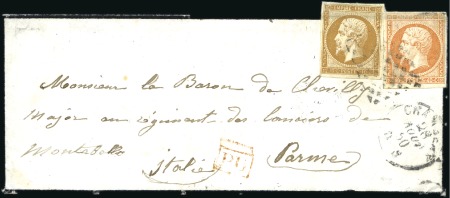 EMPIRE FRANC
Monsieur le Baron de Chevilly
Major au régiment des lanciers de
Montebello Italie Parme
PD